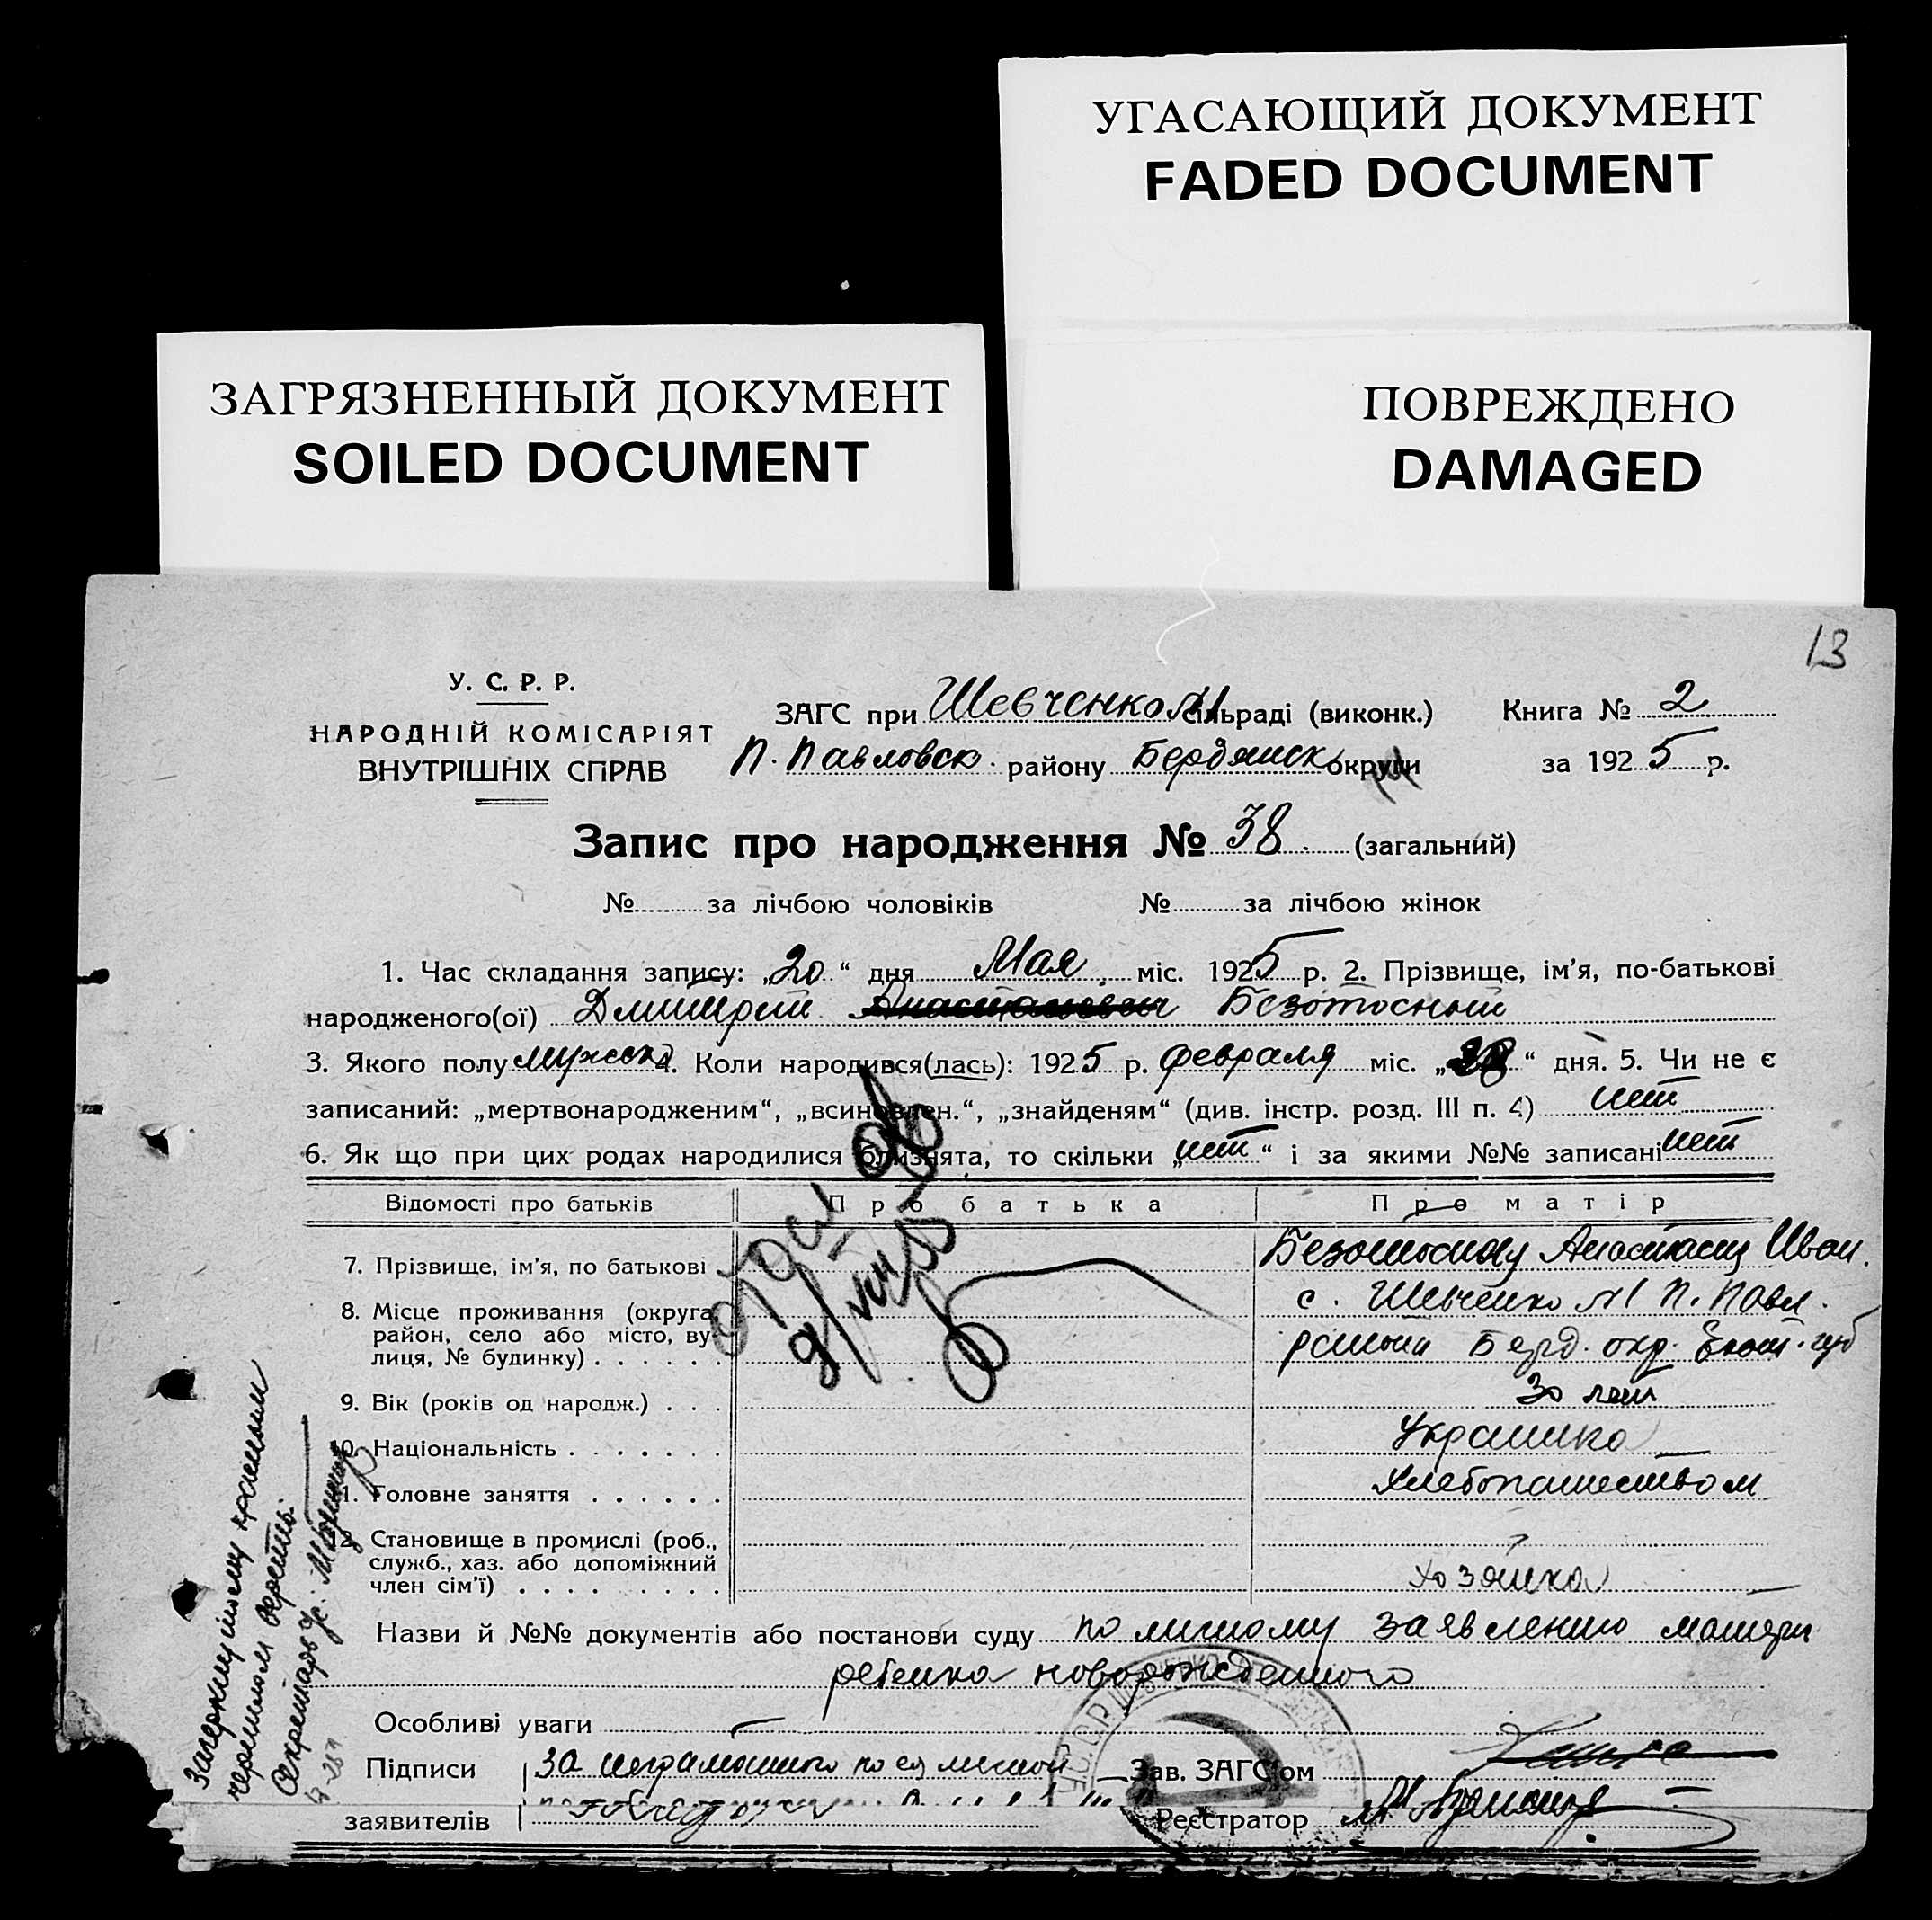 УГАСАЮЩИЙ ДОКУМЕНТ
FADED DOCUMENT
ЗАГРЯЗНЕННЫЙ ДОКУМЕНТ
SOILED DOCUMENT
ПОВРЕЖДЕНО
DAMAGED
13
У. С. Р. Р.
НАРОДНІЙ КОМІСАРІЯТ
ВНУТРІШНІХ СПРАВ
ЗАГС при Шевченко №1 сільраді (виконк.) Книга № 2
П. Павловск. району Бердянск округи за 1925 р.
Запис про народження № 38. (загальний)
№ за лічбою чоловіків № за лічбою жінок
1. Час складання запису: „20“ дня Мая міс. 1925 р. 2. Прізвище, ім’я, по-батькові
народженого(ої) Дмитрий Безотосный
3. Якого полу мужск 4. Коли народився(лась): 1925 р. февраля міс. „ “ дня. 5. Чи не є
записаний: „мертвонародженим“, „всиновлен.“, „знайденям“ (див. інстр. розд. III п. 4) нет
6. Як що при цих родах народилися близнята, то скільки „нет“ і за якими №№ записані нет
Відомості про батьків Про батька Про матір
7. Прізвище, ім’я, по батькові Безотосную Анастасия Иван.
8. Місце проживання (округа, район, село або місто, вулиця, № будинку) с. Шевченко №1 П. Павл.
района Берд. окр. Екат. губ
9. Вік (років од народж.) 30 лет
10. Національність Украинка
11. Головне заняття Хлебопашеством
12. Становище в промислі (роб., служб., хаз. або допоміжний член сім’ї) хозяйка
Назви й №№ документів або постанови суду по личному заявлению матери
ребенка новорожденного
Особливі уваги
Підписи за неграмотного по ея личной Зав. ЗАГС’ом
заявителів Реєстратор
Зачеркнутому красным
чернилом верить
Секретарь